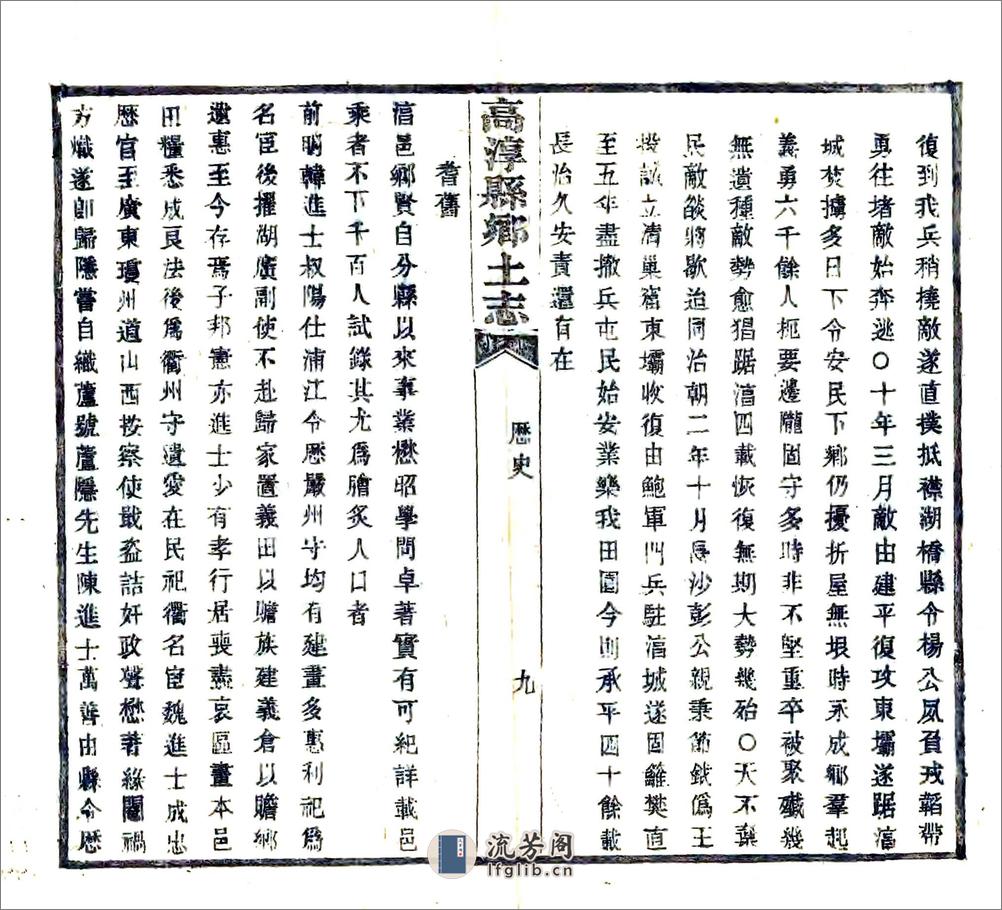 復到我兵稍撓敵遂直撲抵襟湖橋縣令楊公夙負戎韜帶
勇往堵敵始奔逃〇十年三月敵由建平復攻東壩遂踞淳
城焚擄多日下令安民下鄉仍擾折屋無垠時永成鄉羣起
義勇六千餘人扼要邊隴固守多時非不堅重卒被聚殲幾
無遺種敵勢愈猖踞淳四載恢復無期大勢幾殆〇天不棄
民敵燄將歇迨同治朝二年十月長沙彭公親秉節鉞僞王
投誠立清巢窟東壩收復由鮑軍門兵駐淳城遂固籬樊直
至五年盡撤兵屯民始安業樂我田園今則承平四十餘載
長治久安責還有在
高淳縣鄉土志
歷史
九
耆舊
淳邑鄉賢自分縣以來事業懋昭學問卓著實有可紀詳載邑
乘者不下千百人試錄其尤爲膾炙人口者
前明韓進士叔陽仕浦江令歷嚴州守均有建畫多惠利祀爲
名宦後擢湖廣副使不赴歸家置義田以贍族建義倉以贍鄉
遺惠至今存焉子邦憲亦進士少有孝行居喪盡哀區畫本邑
田糧悉成良法後爲衢州守遺愛在民祀衢名宦魏進士成忠
歷官至廣東瓊州道山西按察使戢盜詰奸政聲懋著緣閹禍
方熾遂卽歸隱嘗自織蘆號蘆隱先生陳進士萬善由縣令歷
流芳阁
lfglib.cn